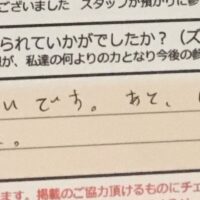 ございました　スタッフが預かりに参
られていかがでしたか？（ズ
が、私達の何よりの力となり今後の参
いです。あと、
。
ます。掲載のご協力頂けるものにチェ